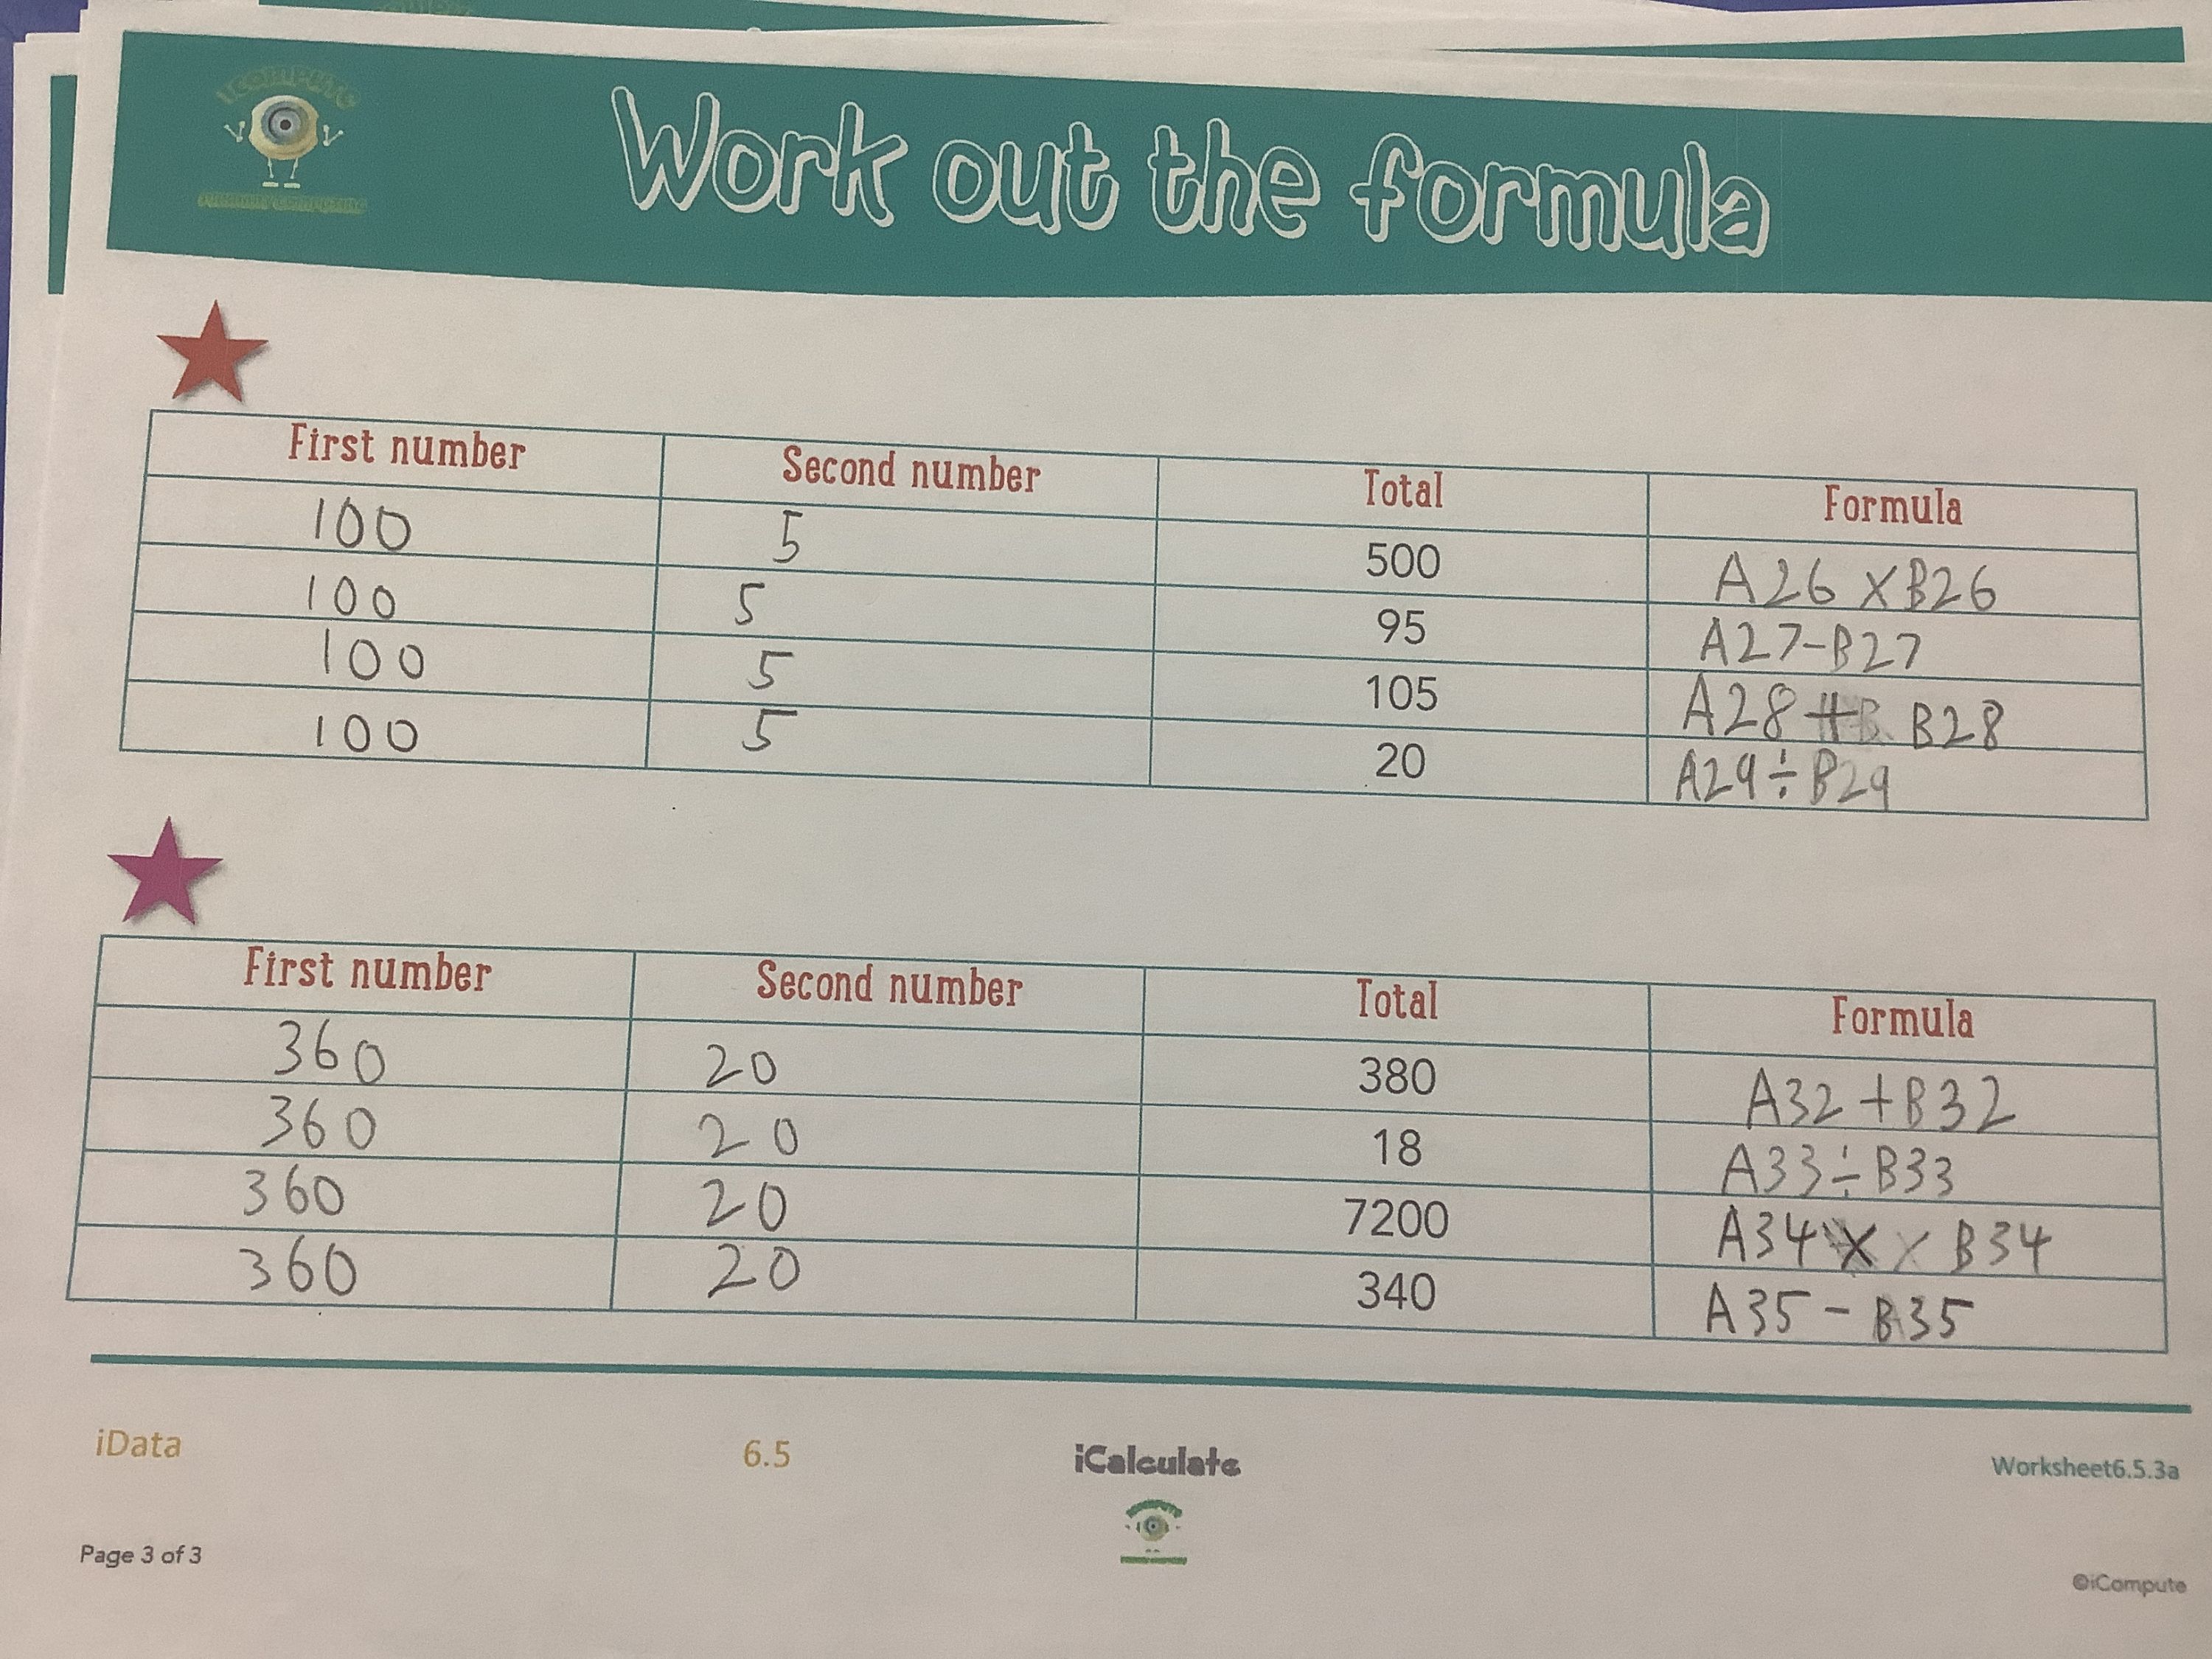 iCompute
Work out the formula
First number Second number Total Formula
100 5 500 A26 x B26
100 5 95 A27-B27
100 5 105 A28 + B28
100 5 20 A29÷B29
First number Second number Total Formula
360 20 380 A32 + B32
360 20 18 A33÷B33
360 20 7200 A34 x x B34
360 20 340 A35 - B35
iData 6.5 iCalculate Worksheet6.5.3a
Page 3 of 3
©iCompute